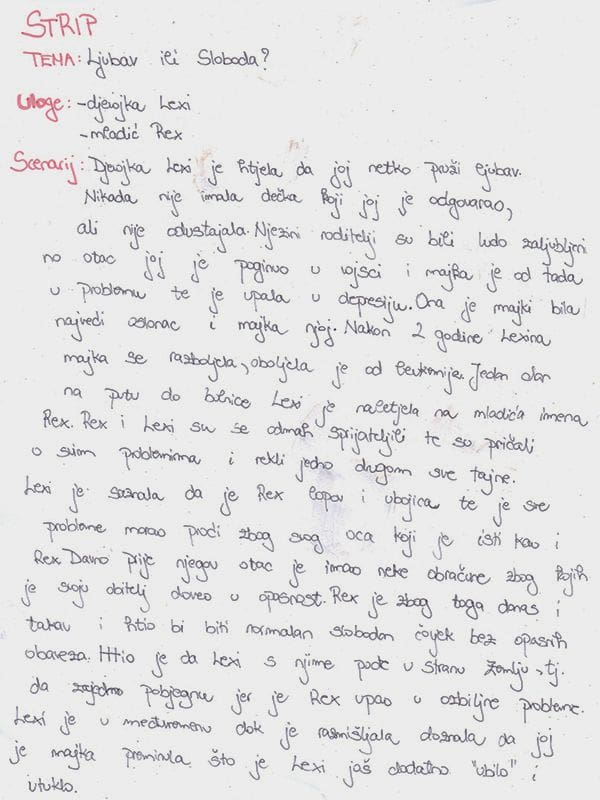 STRIP
TEMA: Ljubav ili Sloboda?
Uloge: -djevojka Lexi
-mladić Rex
Scenarij: Djevojka Lexi je htjela da joj netko pruži ljubav.
Nikada nije imala dečka koji joj je odgovarao,
ali nije odustajala. Njezini roditelji su bili ludo zaljubljeni
no otac joj je poginuo u vojsci i majka je od tada
u problemu te je upala u depresiju. Ona je majki bila
najveći oslonac i majka njoj. Nakon 2 godine Lexina
majka se razboljela, oboljela je od leukemije. Jedan dan
na putu do bolnice Lexi je naletjela na mladića imena
Rex. Rex i Lexi su se odmah sprijateljili te su pričali
o svim problemima i rekli jedno drugom sve tajne.
Lexi je saznala da je Rex lopov i ubojica te je sve
probleme morao proći zbog svog oca koji je isti kao i
Rex. Davno prije njegov otac je imao neke obračune zbog kojih
je svoju obitelj doveo u opasnost. Rex je zbog toga danas i
takav i htio bi biti normalan slobodan čovjek bez opasnih
obaveza. Htio je da Lexi s njime pođe u stranu Zemlju, tj.
da zajedno pobjegnu jer je Rex upao u ozbiljne probleme.
Lexi je u međuvremenu dok je razmišljala doznala da joj
je majka preminula što je Lexi još dodatno "ubilo" i
utuklo.